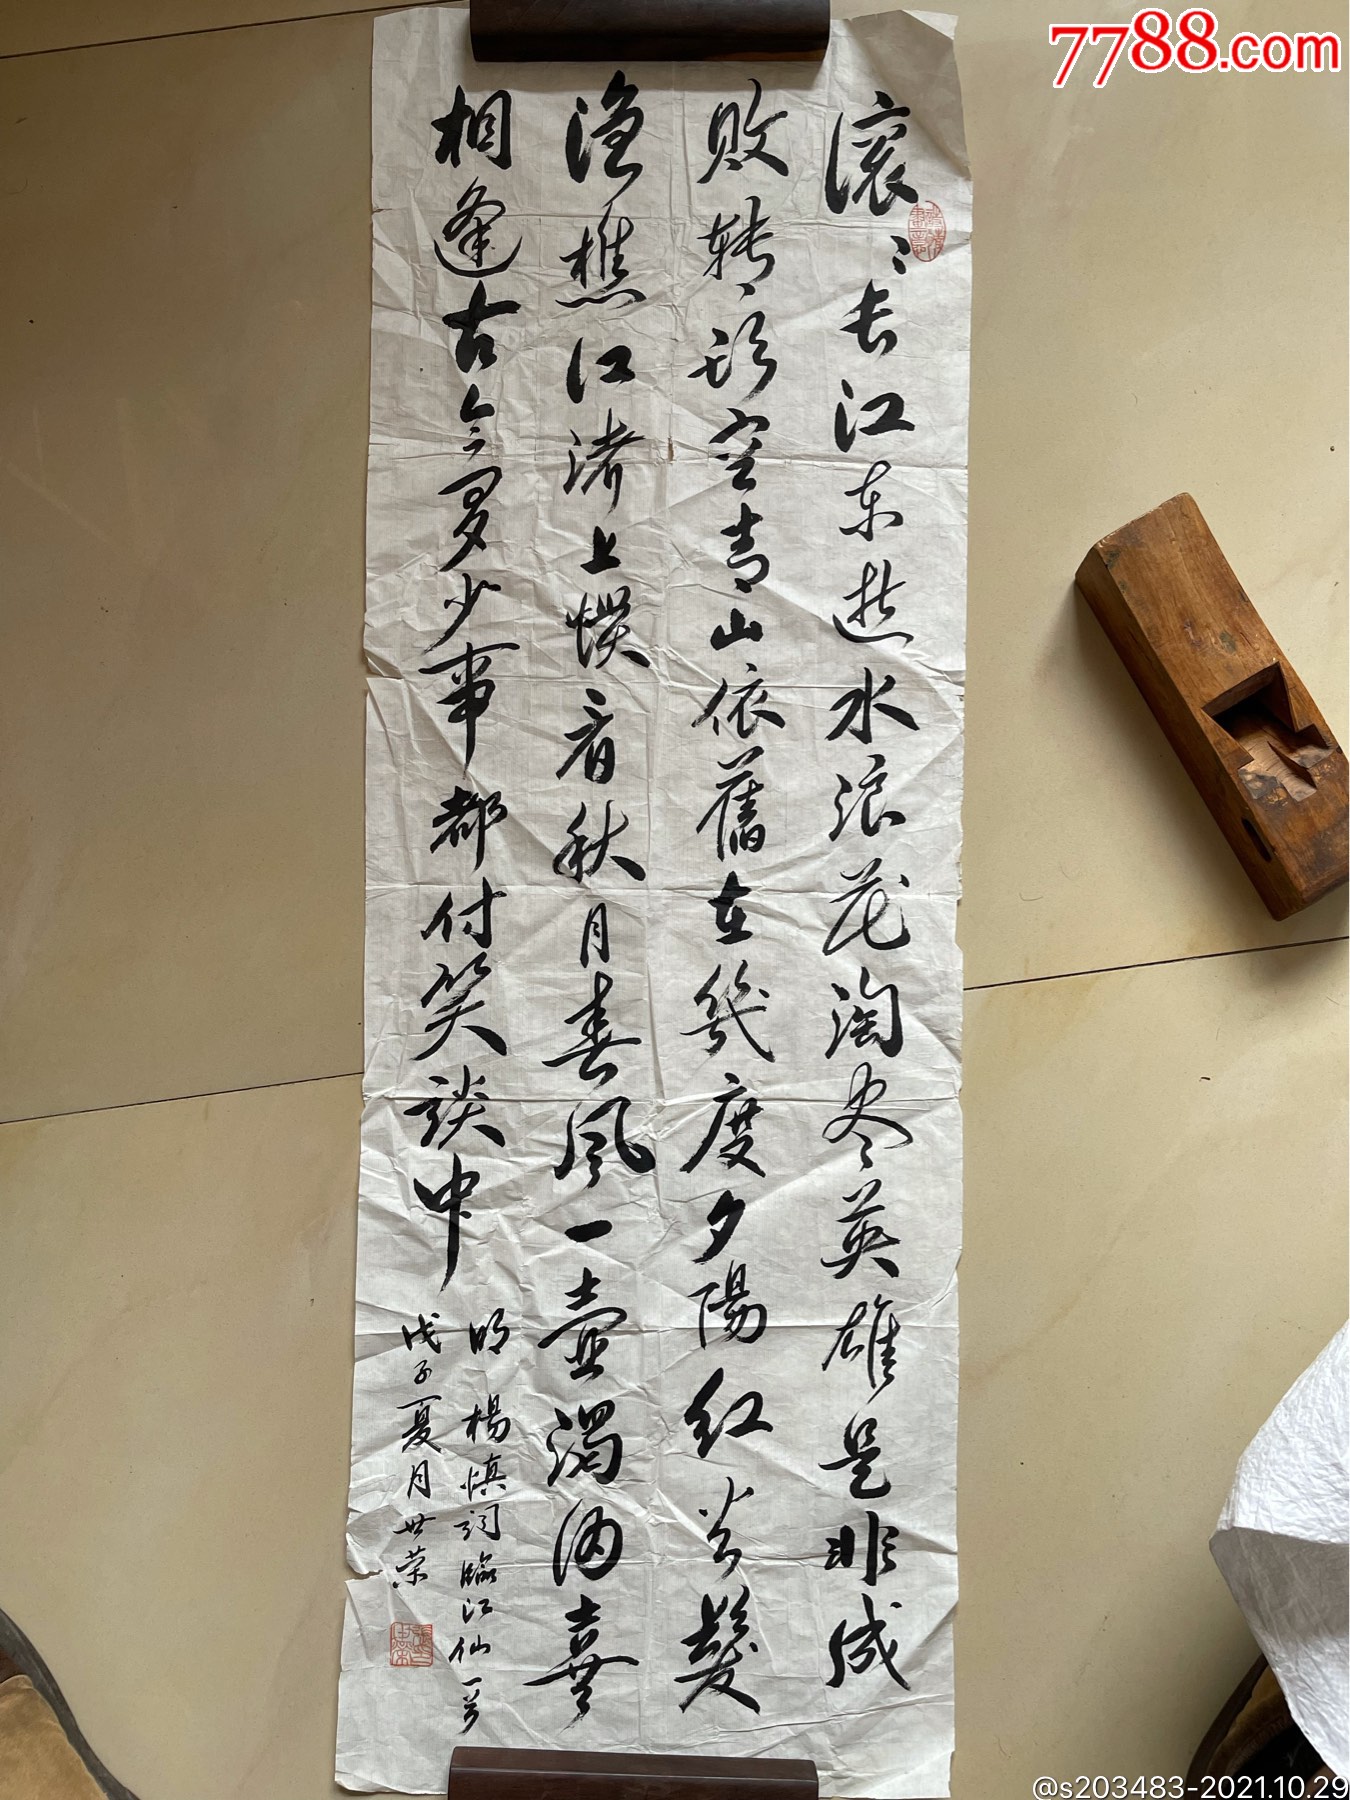 7788.com
滚〻长江东逝水浪花淘尽英雄是非成
败转头空青山依舊在幾度夕陽红白髮
渔樵江渚上惯看秋月春风一壶濁酒喜
相逢古今多少事都付笑談中
明楊慎词臨江仙一首
戊子夏月世荣
@s203483-2021.10.29